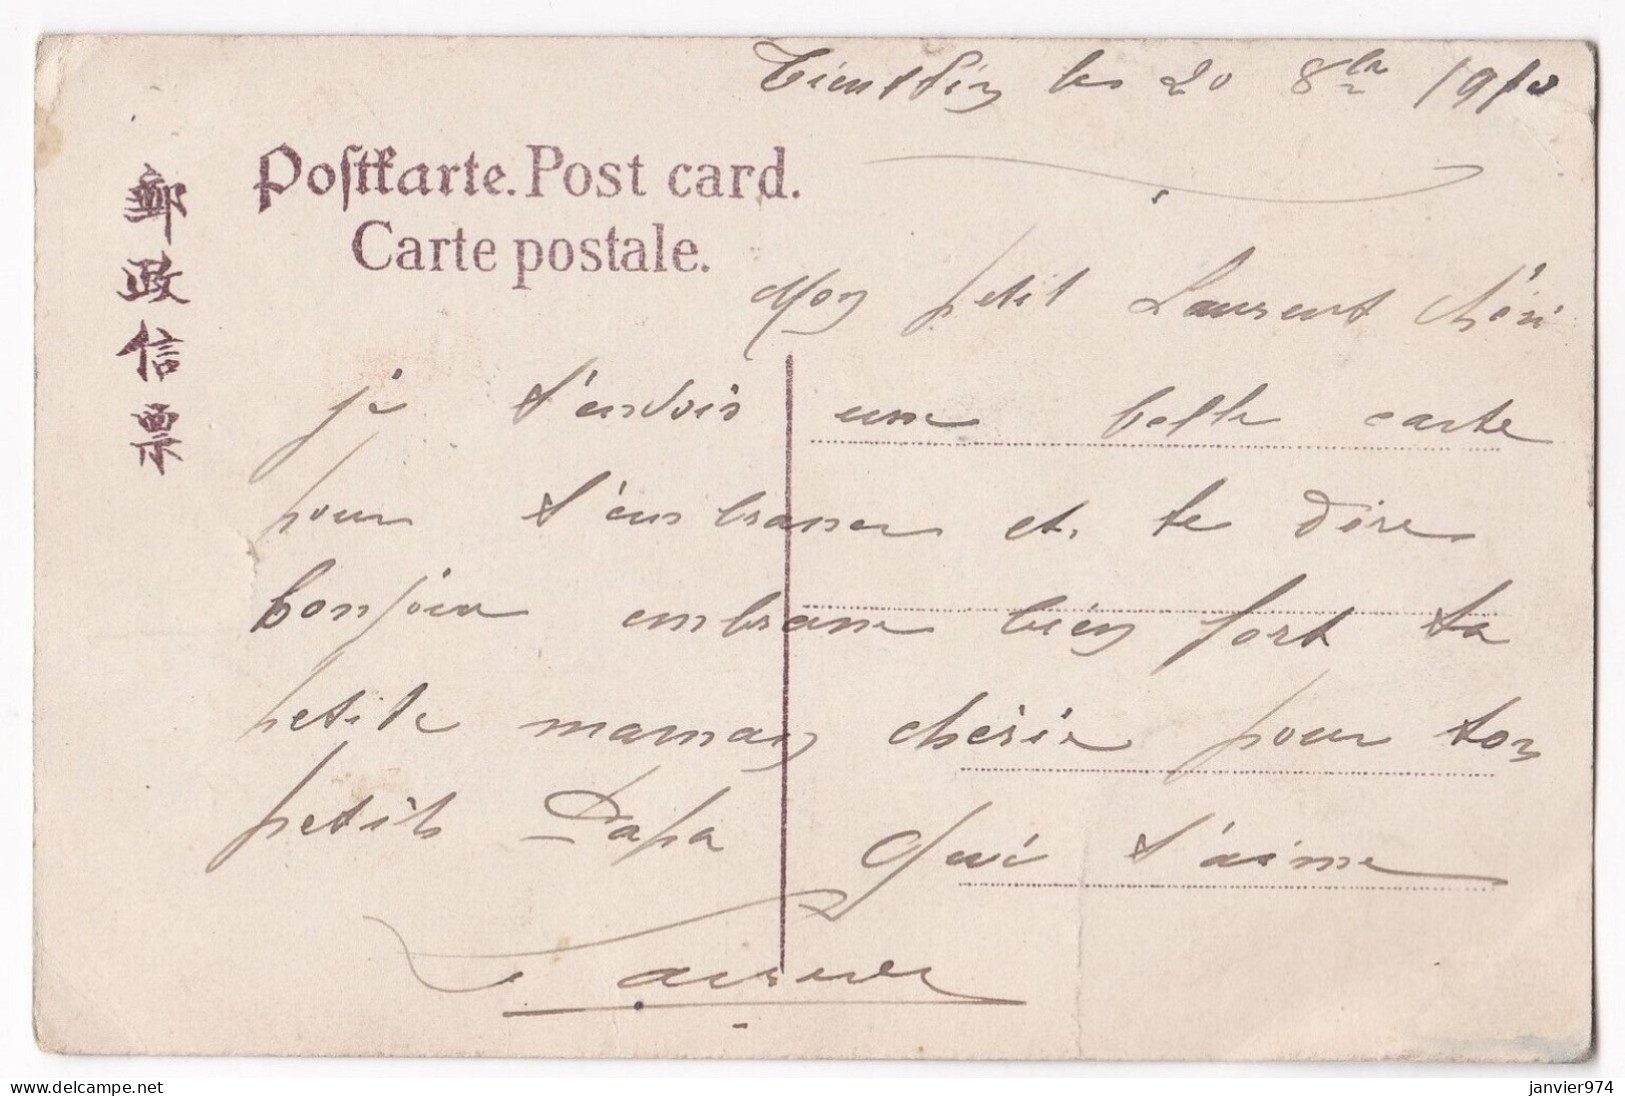 Tientsin le 20 8bre 1910
Postkarte. Post card.
Carte postale.
郵政信票
Mon petit Laurent chéri
je t'envois une belle carte
pour t'embrasser et te dire
bonjour embrasse bien fort ta
petite maman chérie pour ton
petit Papa Qui t'aime
www.delcampe.net
janvier974